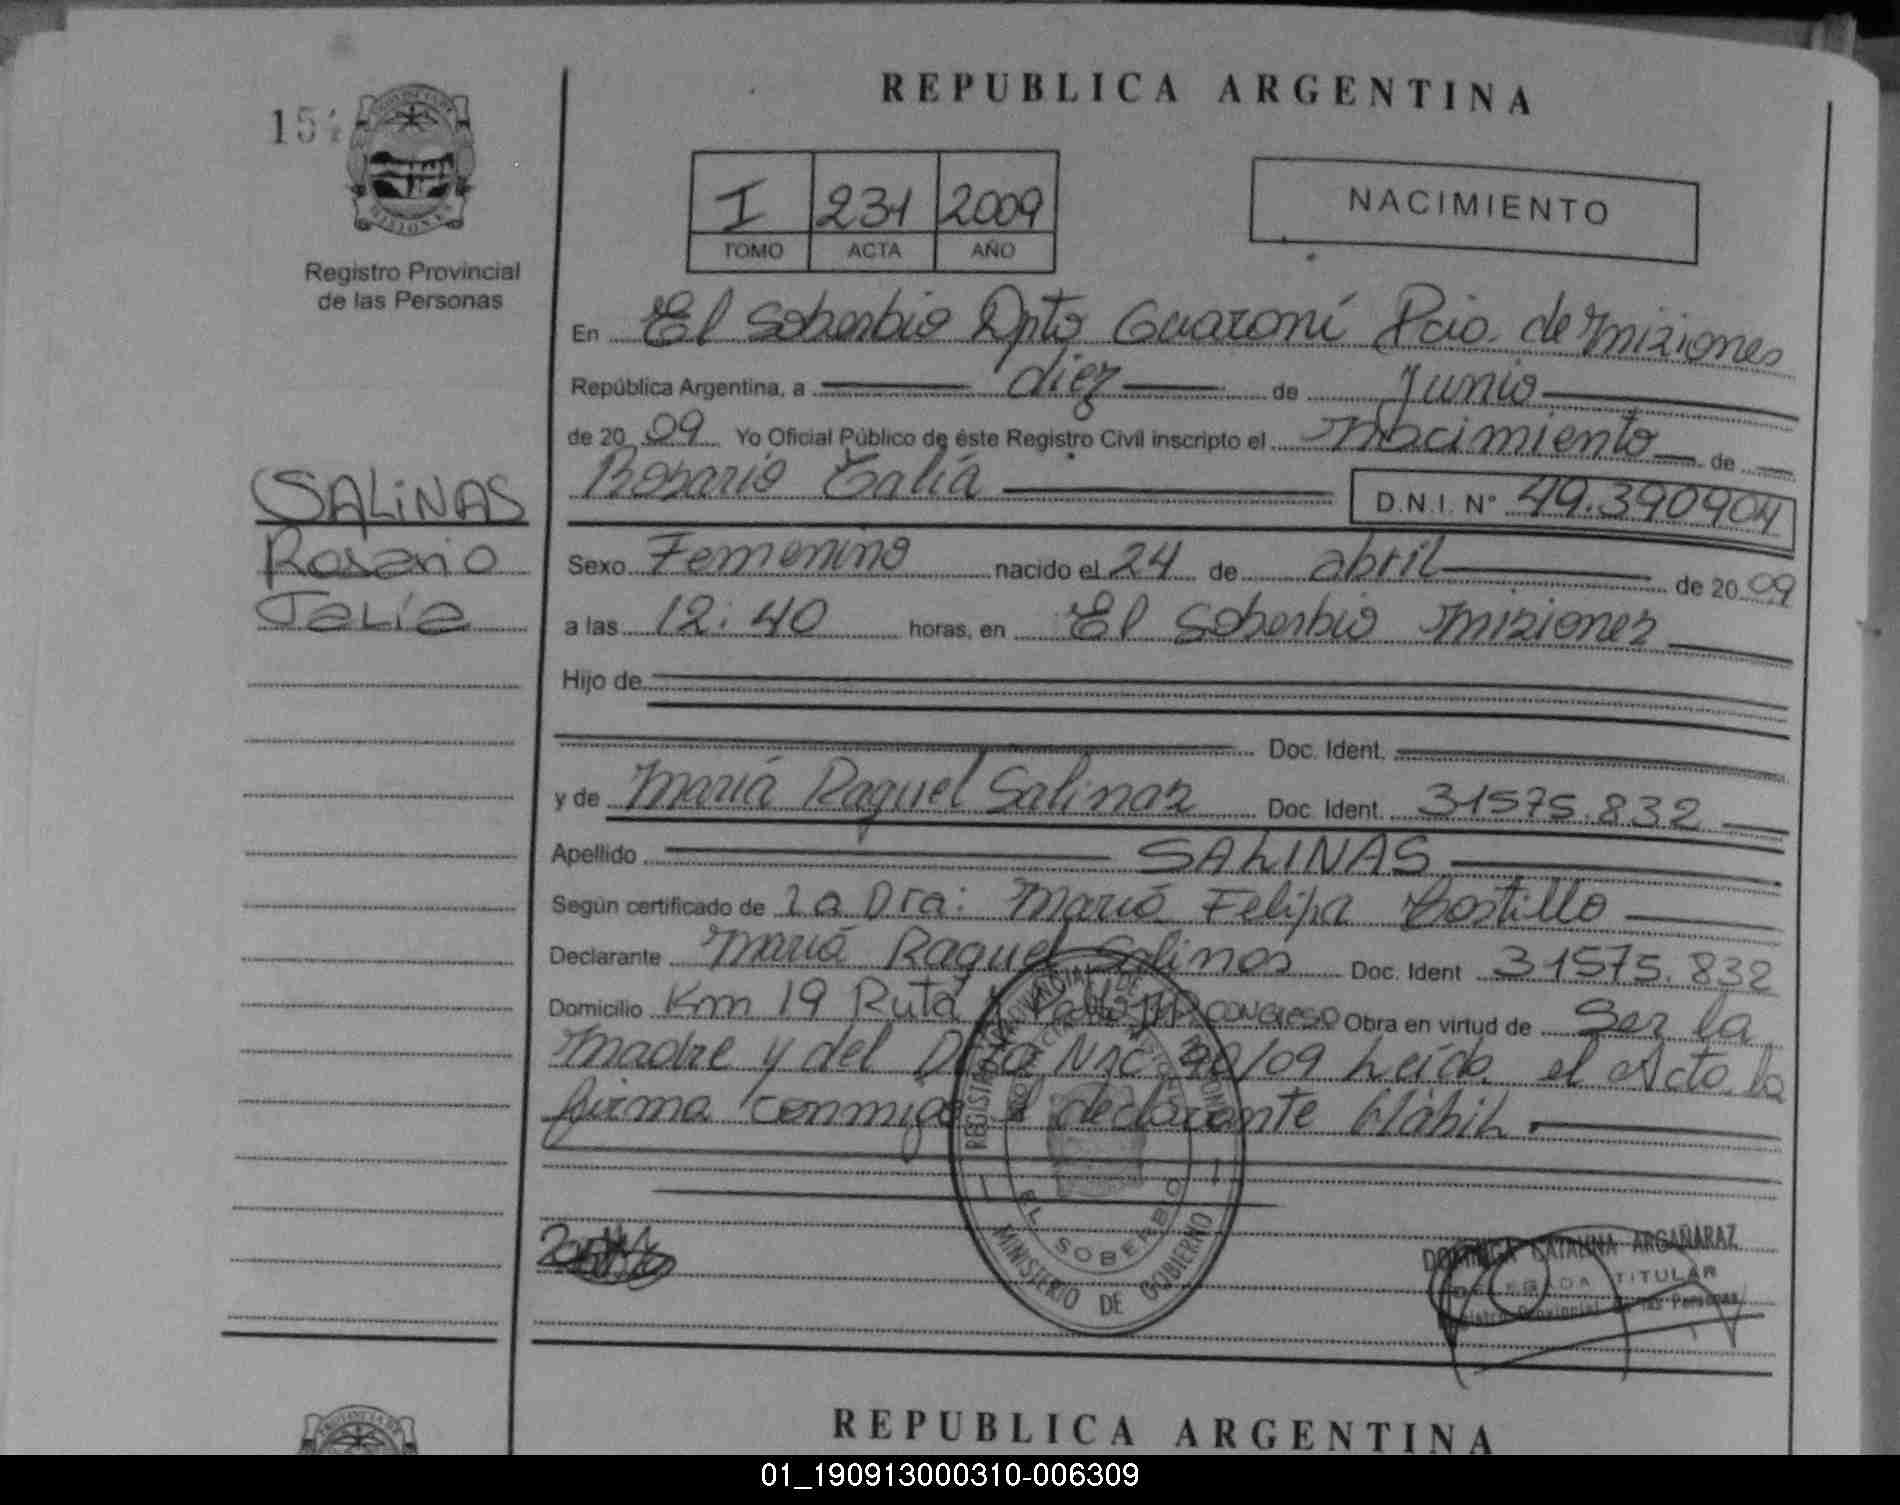 REPUBLICA ARGENTINA
Registro Provincial
de las Personas
I 231 2009
TOMO ACTA AÑO
NACIMIENTO
En El Soberbio Dpto Guaraní Pcia. de Misiones
República Argentina, a diez de Junio
de 2009 Yo Oficial Público de éste Registro Civil inscripto el Nacimiento de
Rosario Talía D.N.I. N° 49.390904
SALINAS
Rosario
Talía
Sexo Femenino nacido el 24 de abril de 2009
a las 12:40 horas, en El Soberbio Misiones
Hijo de
Doc. Ident.
y de María Raquel Salinas Doc. Ident. 31575.832
Apellido SALINAS
Según certificado de La Dra: María Felipa Castillo
Declarante María Raquel Salinas Doc. Ident 31575.832
Domicilio Km 19 Ruta CONGRESO Obra en virtud de Ser la
Madre y del Nac 90/09 Leída el Acta la
firma conmigo el declarante Hábil.
EL SOBERBIO
MINISTERIO DE GOBIERNO
CATALINA ARGAÑARAZ
TITULAR
REPUBLICA ARGENTINA
01_190913000310-006309